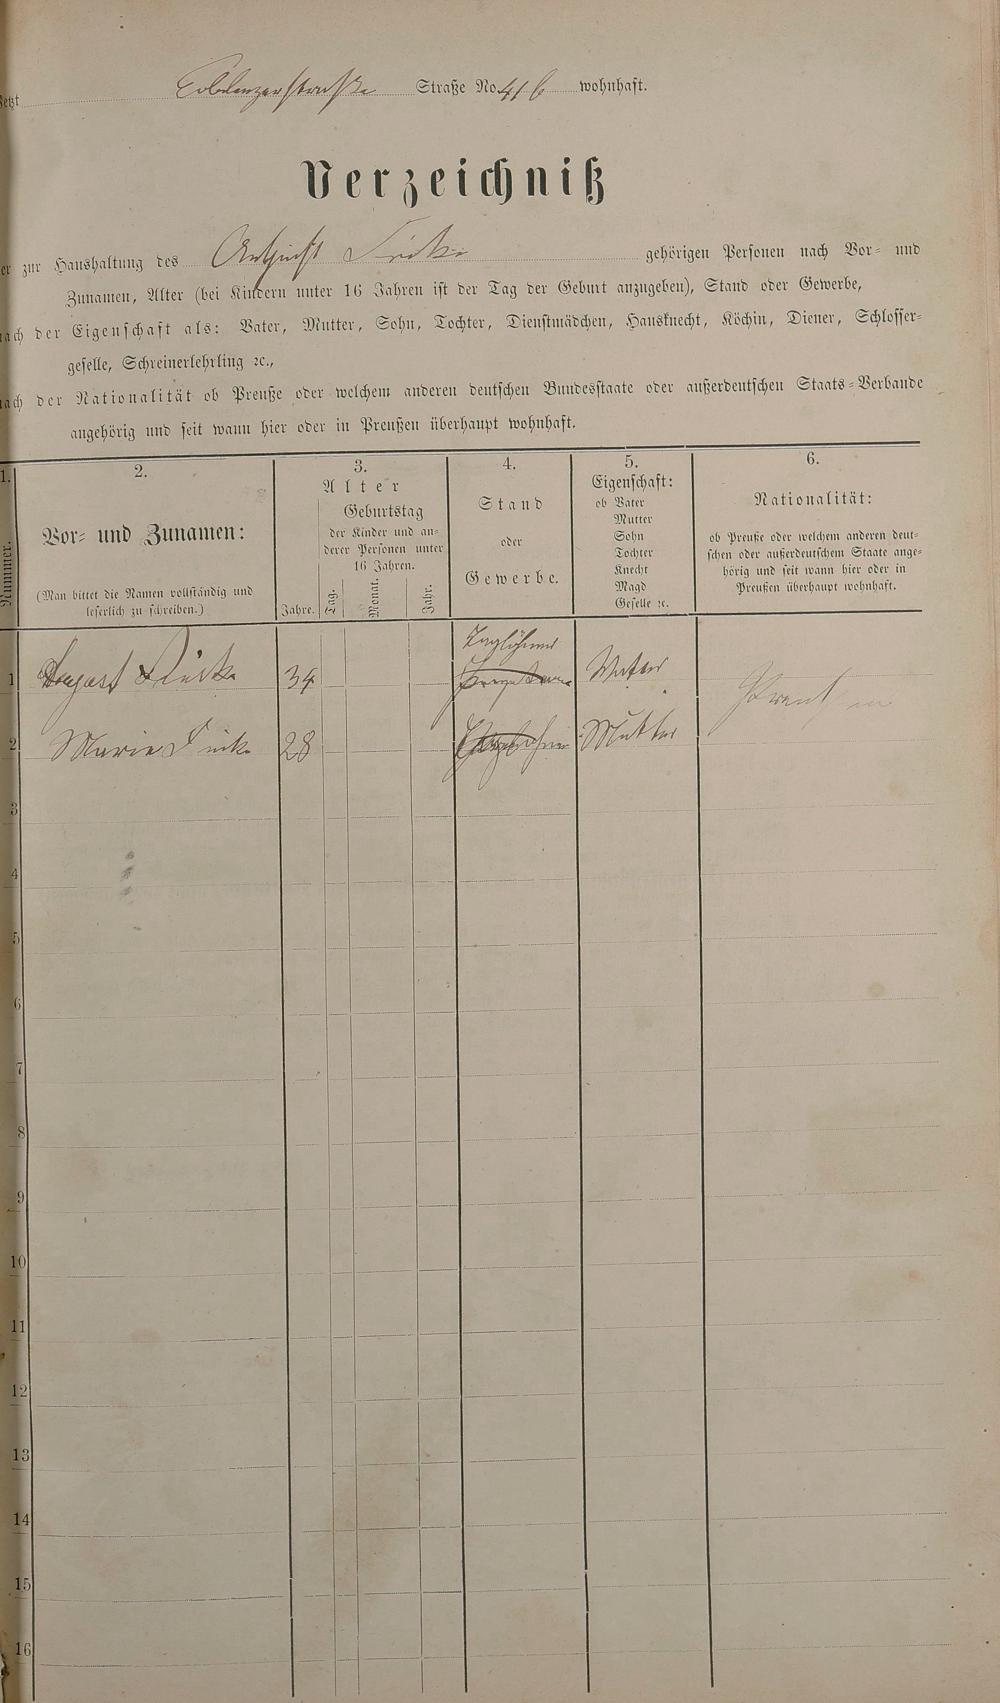 jetzt Coblenzerstraße Straße No. 41 b wohnhaft.
Verzeichniß
er zur Haushaltung des August Fricke gehörigen Personen nach Vor- und
Zunamen, Alter (bei Kindern unter 16 Jahren ist der Tag der Geburt anzugeben), Stand oder Gewerbe,
nach der Eigenschaft als: Vater, Mutter, Sohn, Tochter, Dienstmädchen, Hausknecht, Köchin, Diener, Schlosser-
geselle, Schreinerlehrling ꝛc.,
nach der Nationalität ob Preuße oder welchem anderen deutschen Bundesstaate oder außerdeutschen Staats-Verbande
angehörig und seit wann hier oder in Preußen überhaupt wohnhaft.
1.
Nummer.
2.
Vor- und Zunamen:
(Man bittet die Namen vollständig und
leserlich zu schreiben.)
3.
Alter
Jahre.
Geburtstag
der Kinder und an-
derer Personen unter
16 Jahren.
Tag.
Monat.
Jahr.
4.
Stand
oder
Gewerbe.
5.
Eigenschaft:
ob Vater
Mutter
Sohn
Tochter
Knecht
Magd
Geselle ꝛc.
6.
Nationalität:
ob Preuße oder welchem anderen deut-
schen oder außerdeutschem Staate ange-
hörig und seit wann hier oder in
Preußen überhaupt wohnhaft.
1 August Fricke 34 Taglöhner Vater Preußen
2 Marie Fricke 28 Mutter
3
4
5
6
7
8
9
10
11
12
13
14
15
16